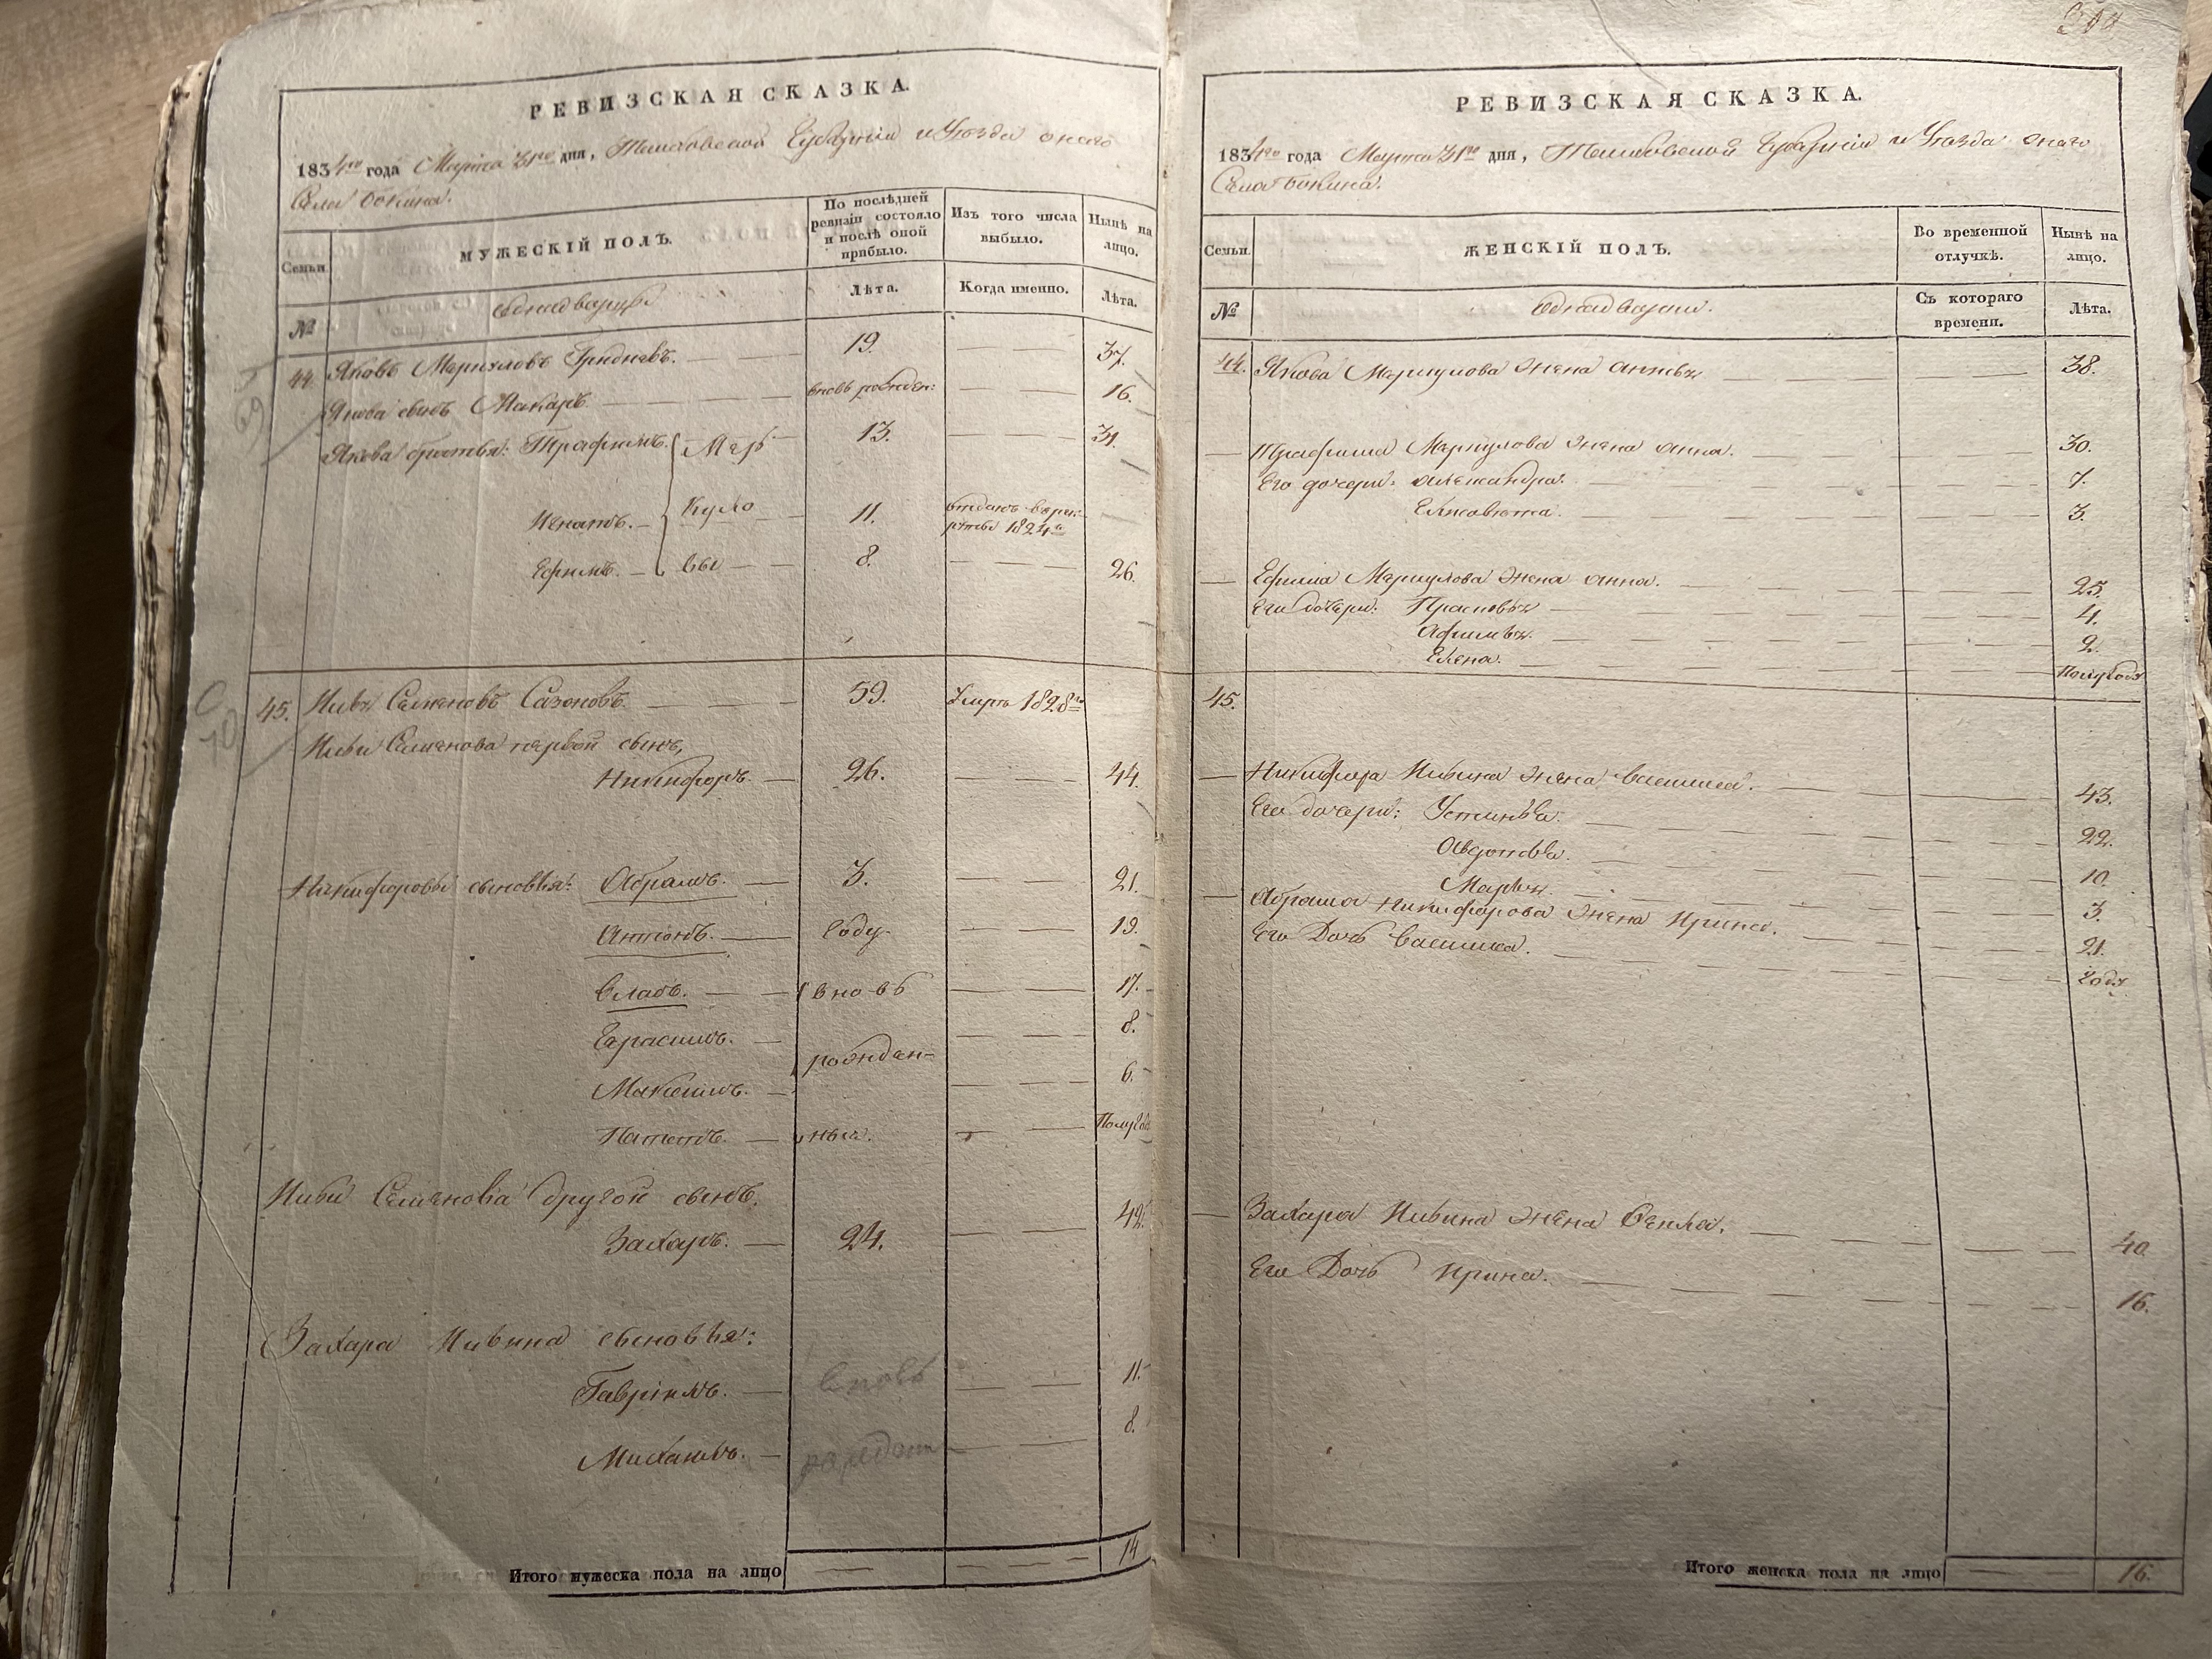 РЕВИЗСКАЯ СКАЗКА.
1834го года Марта 31го дня, Тамбовской Губернiи и Уезда онаго
Села Бокина.
Семьи. МУЖЕСКIЙ ПОЛЪ. По послѣдней ревизiи состояло и послѣ оной прибыло. Изъ того числа выбыло. Нынѣ на лицо.
№ однадворцы Лѣта. Когда именно. Лѣта.
44. Яковъ Меркуловъ Гридневъ. 19. 37.
Якова сынъ Макаръ вновь рожден: 16.
Якова братья: Трафимъ. Мер 13. 31.
Игнатъ. куло 11. отданъ в рекруты 1824го
Ефимъ. вы 8. 26.
45. Ивъ Семеновъ Сазоновъ. 59. Умеръ 1828го
Ививи Семенова первой сынъ,
Никифоръ. 26. 44.
Никифоровы сыновья: Абрамъ. 3. 21.
Антонъ. Году. 19.
Власъ. вновь 17.
Герасимъ. 8.
рожден-
Максимъ. 6.
ныя. Полугода
Семенова другой сынъ.
Захаръ. 24. 42.
Захара Ивина сыновья:
Гаврiилъ. вновь 11.
Михаилъ. рожден 8.
Итого мужеска пола на лицо 14
РЕВИЗСКАЯ СКАЗКА.
1834го года Марта 31го дня, Тамбовской Губернiи и Уезда онаго
Села Бокина.
Семьи. ЖЕНСКIЙ ПОЛЪ. Во временной отлучкѣ. Нынѣ на лицо.
№ Однадворки. Съ котораго времени. Лѣта.
44. Якова Меркулова жена 38.
Трафима Меркулова жена анна. 30.
Его дочери: александра. 7.
Елисавета. 3.
Ефима Меркулова жена анна. 25.
Его дочери: Прасковья 4.
Афимья. 2.
Елена. Полугода
45.
Никифора Ивина жена Василиса. 43.
Его дочери: Устинья. 22.
Авдотья. 10.
Марья. 3.
Абрама Никифорова жена Ирина. 21.
Его Дочь Василиса. Году
Захара Ивина жена Фекла. 40.
Его Дочь Ирина. 16.
Итого женска пола на лицо 16.